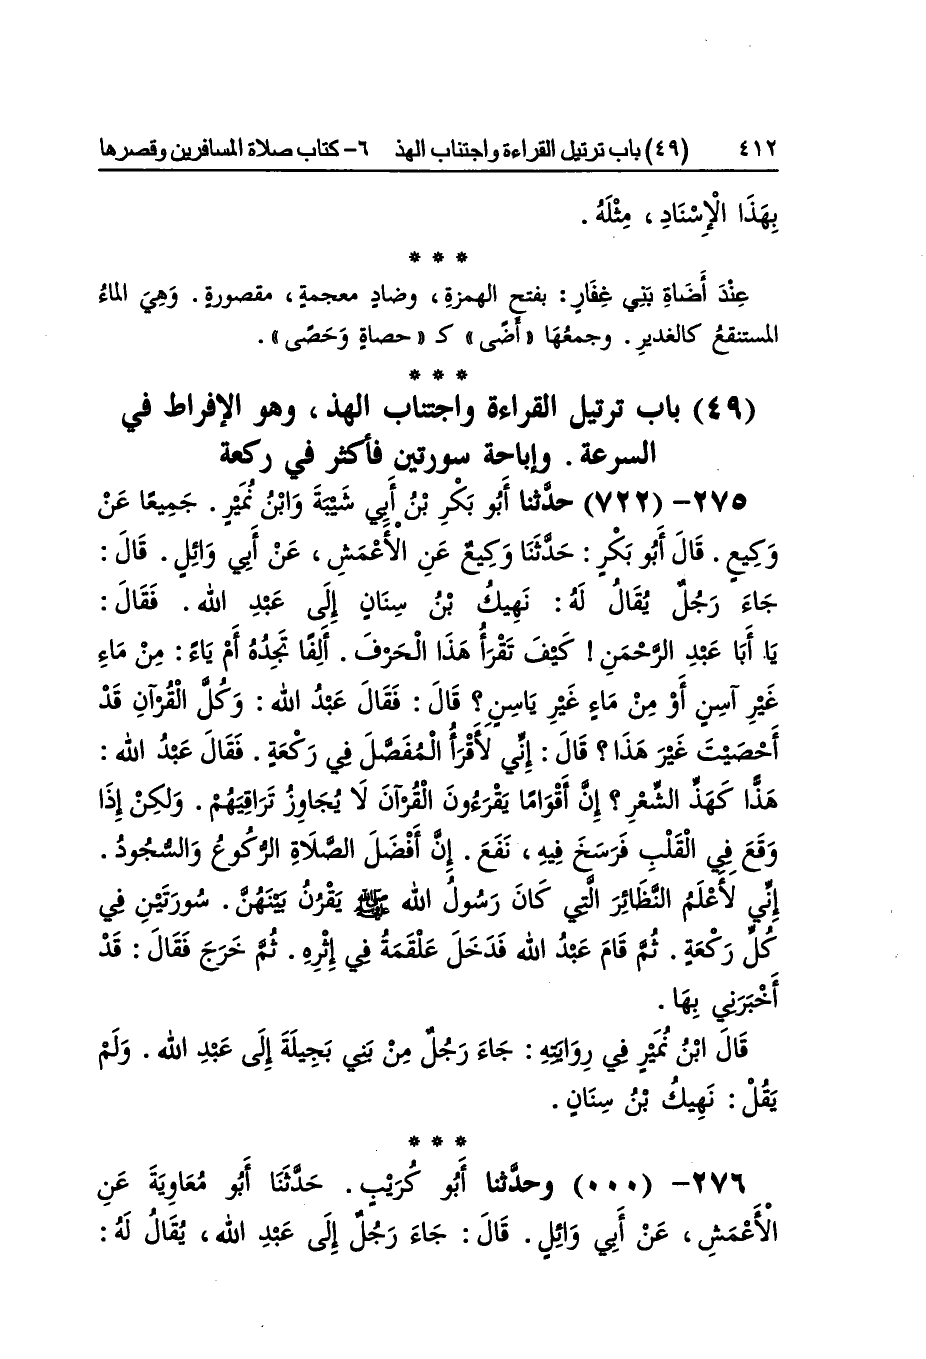 ٤١٢ (٤٩) باب ترتيل القراءة واجتناب الهذ ٦- كتاب صلاة المسافرين وقصرها
بِهَذَا الْإِسْنَادِ ، مِثْلَهُ .
* * *
عِنْدَ أَضَاةِ بَنِي غِفَارٍ : بفتحِ الهمزةِ ، وضادٍ معجمةٍ ، مقصورةٍ . وَهِيَ الماءُ
المستنقعُ كالغديرِ . وجمعُهَا «أَضًى» كـ «حصاةٍ وَحَصًى» .
* * *
(٤٩) باب ترتيل القراءة واجتناب الهذ ، وهو الإفراط في
السرعة . وإباحة سورتين فأكثر في ركعة
٢٧٥- (٧٢٢) حدَّثنا أَبُو بَكْرِ بْنُ أَبِي شَيْبَةَ وَابْنُ نُمَيْرٍ . جَمِيعًا عَنْ
وَكِيعٍ . قَالَ أَبُو بَكْرٍ : حَدَّثَنَا وَكِيعٌ عَنِ الْأَعْمَشِ ، عَنْ أَبِي وَائِلٍ . قَالَ :
جَاءَ رَجُلٌ يُقَالُ لَهُ : نَهِيكُ بْنُ سِنَانٍ إِلَى عَبْدِ الله . فَقَالَ :
يَا أَبَا عَبْدِ الرَّحْمَنِ ! كَيْفَ تَقْرَأُ هَذَا الْحَرْفَ . أَلِفًا تَجِدُهُ أَمْ يَاءً : مِنْ مَاءٍ
غَيْرِ آسِنٍ أَوْ مِنْ مَاءٍ غَيْرِ يَاسِنٍ ؟ قَالَ : فَقَالَ عَبْدُ الله : وَكُلَّ الْقُرْآنِ قَدْ
أَحْصَيْتَ غَيْرَ هَذَا ؟ قَالَ : إِنِّي لَأَقْرَأُ الْمُفَصَّلَ فِي رَكْعَةٍ . فَقَالَ عَبْدُ الله :
هَذًّا كَهَذِّ الشِّعْرِ ؟ إِنَّ أَقْوَامًا يَقْرَءُونَ الْقُرْآنَ لَا يُجَاوِزُ تَرَاقِيَهُمْ . وَلكِنْ إِذَا
وَقَعَ فِي الْقَلْبِ فَرَسَخَ فِيهِ ، نَفَعَ . إِنَّ أَفْضَلَ الصَّلَاةِ الرُّكُوعُ وَالسُّجُودُ .
إِنِّي لَأَعْلَمُ النَّظَائِرَ الَّتِي كَانَ رَسُولُ الله ﷺ يَقْرُنُ بَيْنَهُنَّ . سُورَتَيْنِ فِي
كُلِّ رَكْعَةٍ . ثُمَّ قَامَ عَبْدُ الله فَدَخَلَ عَلْقَمَةُ فِي إِثْرِهِ . ثُمَّ خَرَجَ فَقَالَ : قَدْ
أَخْبَرَنِي بِهَا .
قَالَ ابْنُ نُمَيْرٍ فِي رِوَايَتِهِ : جَاءَ رَجُلٌ مِنْ بَنِي بَجِيلَةَ إِلَى عَبْدِ الله . وَلَمْ
يَقُلْ : نَهِيكُ بْنُ سِنَانٍ .
* * *
٢٧٦- (٠٠٠) وحدَّثنا أَبُو كُرَيْبٍ . حَدَّثَنَا أَبُو مُعَاوِيَةَ عَنِ
الْأَعْمَشِ ، عَنْ أَبِي وَائِلٍ . قَالَ : جَاءَ رَجُلٌ إِلَى عَبْدِ الله ، يُقَالُ لَهُ :